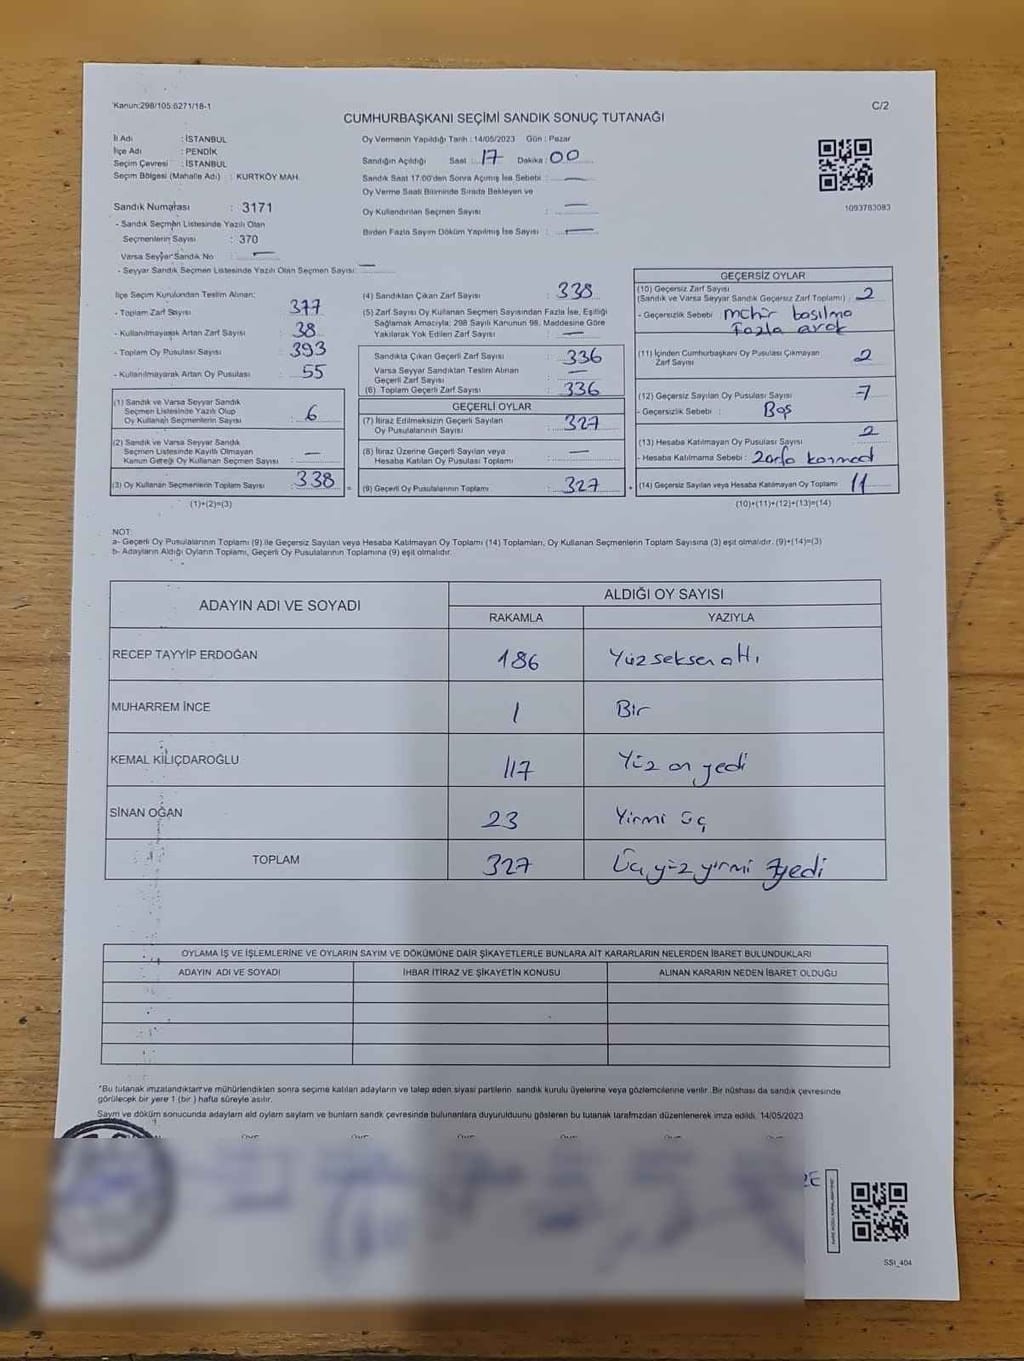 Kanun:298/105:6271/18-1
C/2
CUMHURBAŞKANI SEÇİMİ SANDIK SONUÇ TUTANAĞI
İl Adı : İSTANBUL
İlçe Adı : PENDİK
Seçim Çevresi : İSTANBUL
Seçim Bölgesi (Mahalle Adı) : KURTKÖY MAH.
Sandık Numarası : 3171
- Sandık Seçmen Listesinde Yazılı Olan
Seçmenlerin Sayısı : 370
Varsa Seyyar Sandık No : —
- Seyyar Sandık Seçmen Listesinde Yazılı Olan Seçmen Sayısı: —
Oy Vermenin Yapıldığı Tarih : 14/05/2023 Gün : Pazar
Sandığın Açıldığı Saat : 17 Dakika : 00
Sandık Saat 17:00'den Sonra Açımış İse Sebebi : —
Oy Verme Saati Bitiminde Sırada Bekleyen ve
Oy Kullandırılan Seçmen Sayısı : —
Birden Fazla Sayım Döküm Yapılmış İse Sayısı : —
1093783083
İlçe Seçim Kurulundan Teslim Alınan:
- Toplam Zarf Sayısı : 377
- Kullanılmayarak Artan Zarf Sayısı : 38
- Toplam Oy Pusulası Sayısı : 393
- Kullanılmayarak Artan Oy Pusulası : 55
(1) Sandık ve Varsa Seyyar Sandık
Seçmen Listesinde Yazılı Olup
Oy Kullanan Seçmenlerin Sayısı : 6
(2) Sandık ve Varsa Seyyar Sandık
Seçmen Listesinde Kayıtlı Olmayan
Kanun Gereği Oy Kullanan Seçmen Sayısı : —
(3) Oy Kullanan Seçmenlerin Toplam Sayısı : 338
(1)+(2)=(3)
(4) Sandıktan Çıkan Zarf Sayısı : 338
(5) Zarf Sayısı Oy Kullanan Seçmen Sayısından Fazla İse, Eşitliği
Sağlamak Amacıyla; 298 Sayılı Kanunun 98. Maddesine Göre
Yakılarak Yok Edilen Zarf Sayısı : —
Sandıkta Çıkan Geçerli Zarf Sayısı : 336
Varsa Seyyar Sandıktan Teslim Alınan
Geçerli Zarf Sayısı : —
(6) Toplam Geçerli Zarf Sayısı : 336
GEÇERLİ OYLAR
(7) İtiraz Edilmeksizin Geçerli Sayılan
Oy Pusulalarının Sayısı : 327
(8) İtiraz Üzerine Geçerli Sayılan veya
Hesaba Katılan Oy Pusulası Toplamı : —
(9) Geçerli Oy Pusulalarının Toplamı : 327
GEÇERSİZ OYLAR
(10) Geçersiz Zarf Sayısı
(Sandık ve Varsa Seyyar Sandık Geçersiz Zarf Toplamı) : 2
- Geçersizlik Sebebi : mühür basılma
fazla
(11) İçinden Cumhurbaşkanı Oy Pusulası Çıkmayan
Zarf Sayısı : 2
(12) Geçersiz Sayılan Oy Pusulası Sayısı : 7
- Geçersizlik Sebebi : Boş
(13) Hesaba Katılmayan Oy Pusulası Sayısı : 2
- Hesaba Katılmama Sebebi :
(14) Geçersiz Sayılan veya Hesaba Katılmayan Oy Toplamı : 11
(10)+(11)+(12)+(13)=(14)
NOT:
a- Geçerli Oy Pusulalarının Toplamı (9) ile Geçersiz Sayılan veya Hesaba Katılmayan Oy Toplamı (14) Toplamları, Oy Kullanan Seçmenlerin Toplam Sayısına (3) eşit olmalıdır. (9)+(14)=(3)
b- Adayların Aldığı Oyların Toplamı, Geçerli Oy Pusulalarının Toplamına (9) eşit olmalıdır.
ADAYIN ADI VE SOYADI
ALDIĞI OY SAYISI
RAKAMLA YAZIYLA
RECEP TAYYİP ERDOĞAN 186 Yüz seksen altı
MUHARREM İNCE 1 Bir
KEMAL KILIÇDAROĞLU 117 Yüz on yedi
SİNAN OĞAN 23 Yirmi üç
TOPLAM 327 Üç yüz yirmi yedi
OYLAMA İŞ VE İŞLEMLERİNE VE OYLARIN SAYIM VE DÖKÜMÜNE DAİR ŞİKAYETLERLE BUNLARA AİT KARARLARIN NELERDEN İBARET BULUNDUKLARI
ADAYIN ADI VE SOYADI İHBAR İTİRAZ VE ŞİKAYETİN KONUSU ALINAN KARARIN NEDEN İBARET OLDUĞU
*Bu tutanak imzalandıktan ve mühürlendikten sonra seçime katılan adayların ve talep eden siyasi partilerin sandık kurulu üyelerine veya gözlemcilerine verilir. Bir nüshası da sandık çevresinde
görülecek bir yere 1 (bir) hafta süreyle asılır.
Sayım ve döküm sonucunda adayların aldığı oyların sayım ve bunların sandık çevresinde bulunanlara duyurulduğunu gösteren bu tutanak tarafımızdan düzenlenerek imza edildi. 14/05/2023
SSt_404